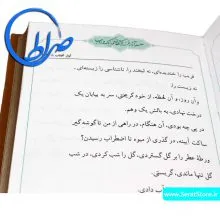 صراط
قریب را خندیده‌ای، نه لبخند را. ناشناسی را زیسته‌ای،
نه زیست را.
وآن روز، و آن لحظه، از خود گریختی، سر به بیابان یک
درخت نهادی، به بالش یک وهم.
در پی چه بودی، آن هنگام، در راهی از من تا گوشه‌گیر
ساکت آیینه، در گذری از میوه تا اضطراب رسیدن؟
ورطهٔ عطر را بر گل گستردی، گل را شب کردی، در شب
گل تنها ماندی، گریستی.
آب دادی.
www.SeratStore.ir